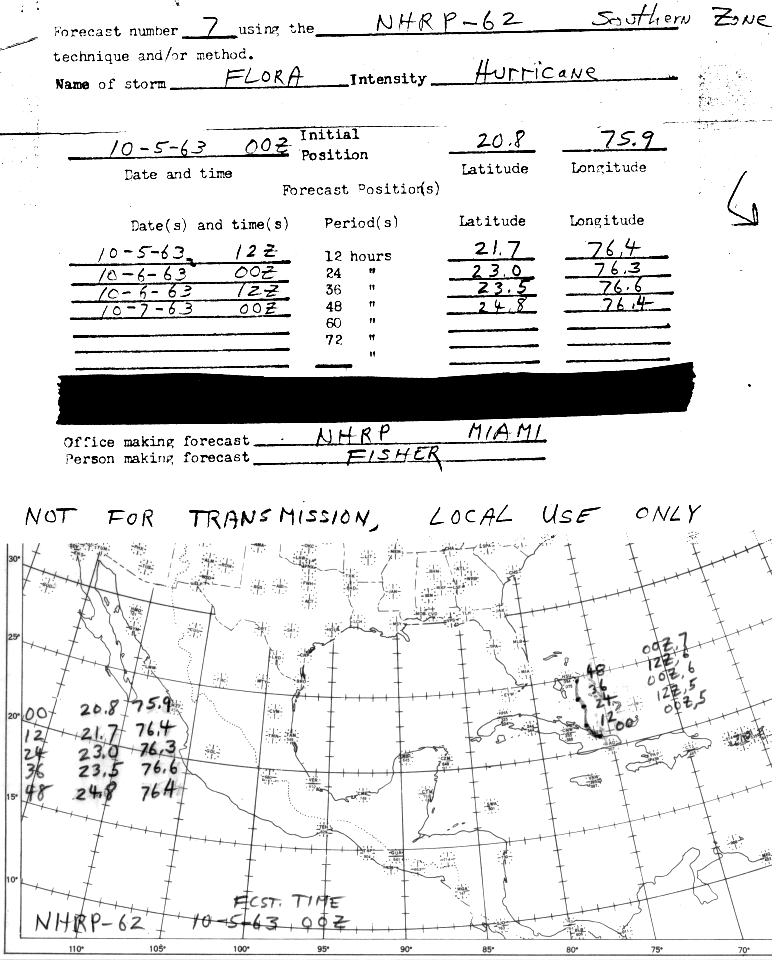 Forecast number 7 using the NHRP-62 Southern Zone
technique and/or method.
Name of storm FLORA Intensity Hurricane
10-5-63 00Z Initial Position 20.8 75.9
Date and time Latitude Longitude
Forecast Position(s)
Date(s) and time(s) Period(s) Latitude Longitude
10-5-63 12Z 12 hours 21.7 76.4
10-6-63 00Z 24 " 23.0 76.3
10-6-63 12Z 36 " 23.5 76.6
10-7-63 00Z 48 " 24.8 76.4
60 "
72 "
"
Office making forecast NHRP MIAMI
Person making forecast FISHER
NOT FOR TRANSMISSION, LOCAL USE ONLY
30°
25°
20°
15°
10°
48
36
24
12
00
00Z,7
12Z,6
00Z,6
12Z,5
00Z,5
00 20.8 75.9
12 21.7 76.4
24 23.0 76.3
36 23.5 76.6
48 24.8 764
FCST. TIME
NHRP-62 10-5-63 00Z
110° 105° 100° 95° 90° 85° 80° 75° 70°